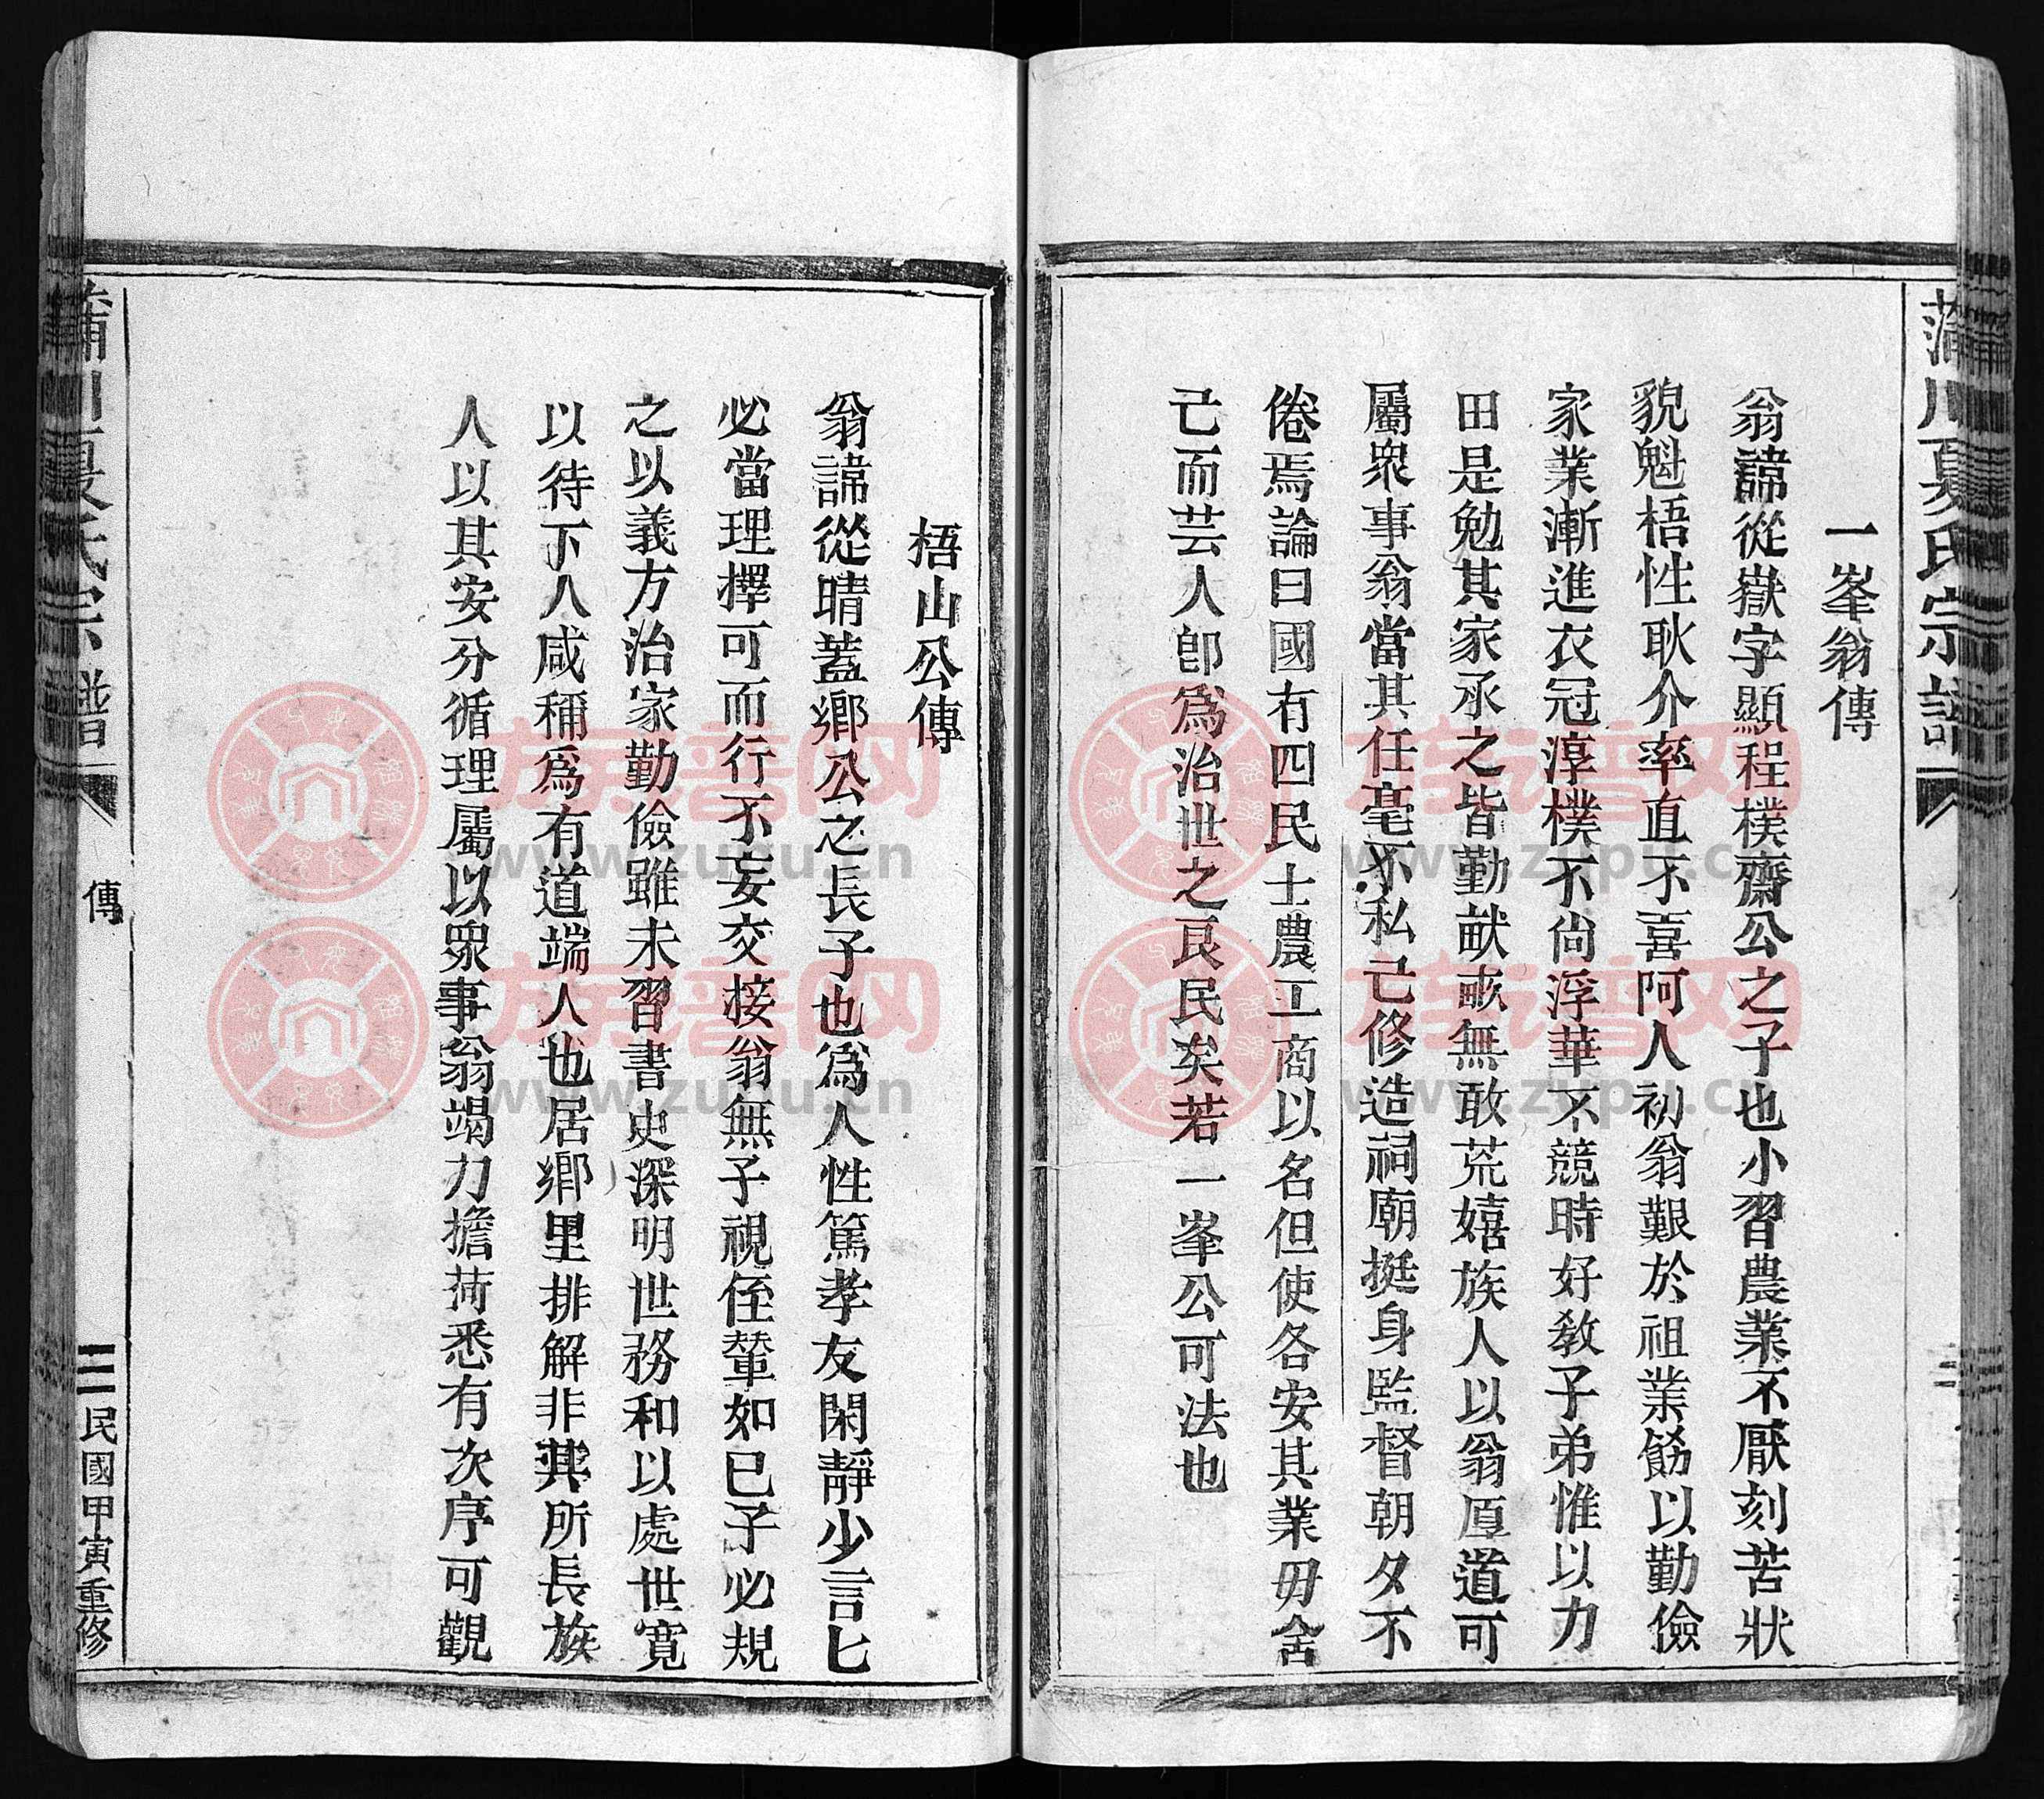 蒲川夏氏宗譜
一峯翁傳
翁諱從嶽字顯程樸齋公之子也小習農業不厭刻苦狀
貌魁梧性耿介率直不喜阿人初翁艱於祖業飭以勤儉
家業漸進衣冠淳樸不尙浮華不競時好敎子弟惟以力
田是勉其家承之皆勤畎畝無敢荒嬉族人以翁厚道可
屬衆事翁當其任毫不私己修造祠廟挺身監督朝夕不
倦焉論曰國有四民士農工商以名但使各安其業毋舍
己而芸人卽爲治世之良民矣若一峯公可法也
梧山公傳
翁諱從晴蓋鄉公之長子也爲人性篤孝友閑靜少言匕
必當理擇可而行不妄交接翁無子視侄輩如已子必規
之以義方治家勤儉雖未習書史深明世務和以處世寬
以待下人咸稱爲有道端人也居鄉里排解非其所長族
人以其安分循理屬以衆事翁竭力擔荷悉有次序可觀
蒲川夏氏宗譜
傳
三
民國甲寅重修
族谱网
www.zupu.cn
族谱网
www.zupu.cn
族谱网
www.zupu.cn
族谱网
www.zupu.cn